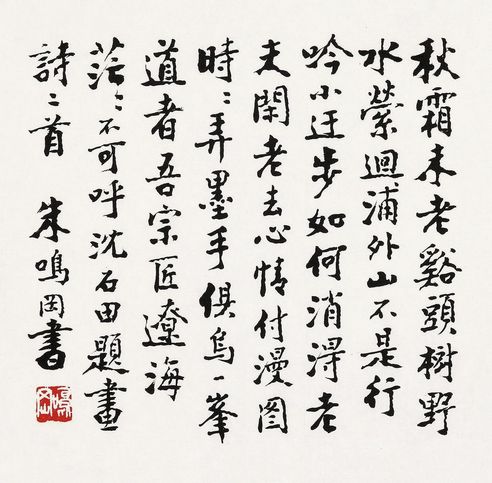 秋霜未老谿頭樹野
水縈迴浦外山不是行
吟小迂步如何消淂老
夫閑老去心情付漫圖
時〻弄墨手俱烏一峯
道者吾宗匠遼海
茫〻不可呼沈石田題畫
詩二首 朱鳴岡書
鳴岡